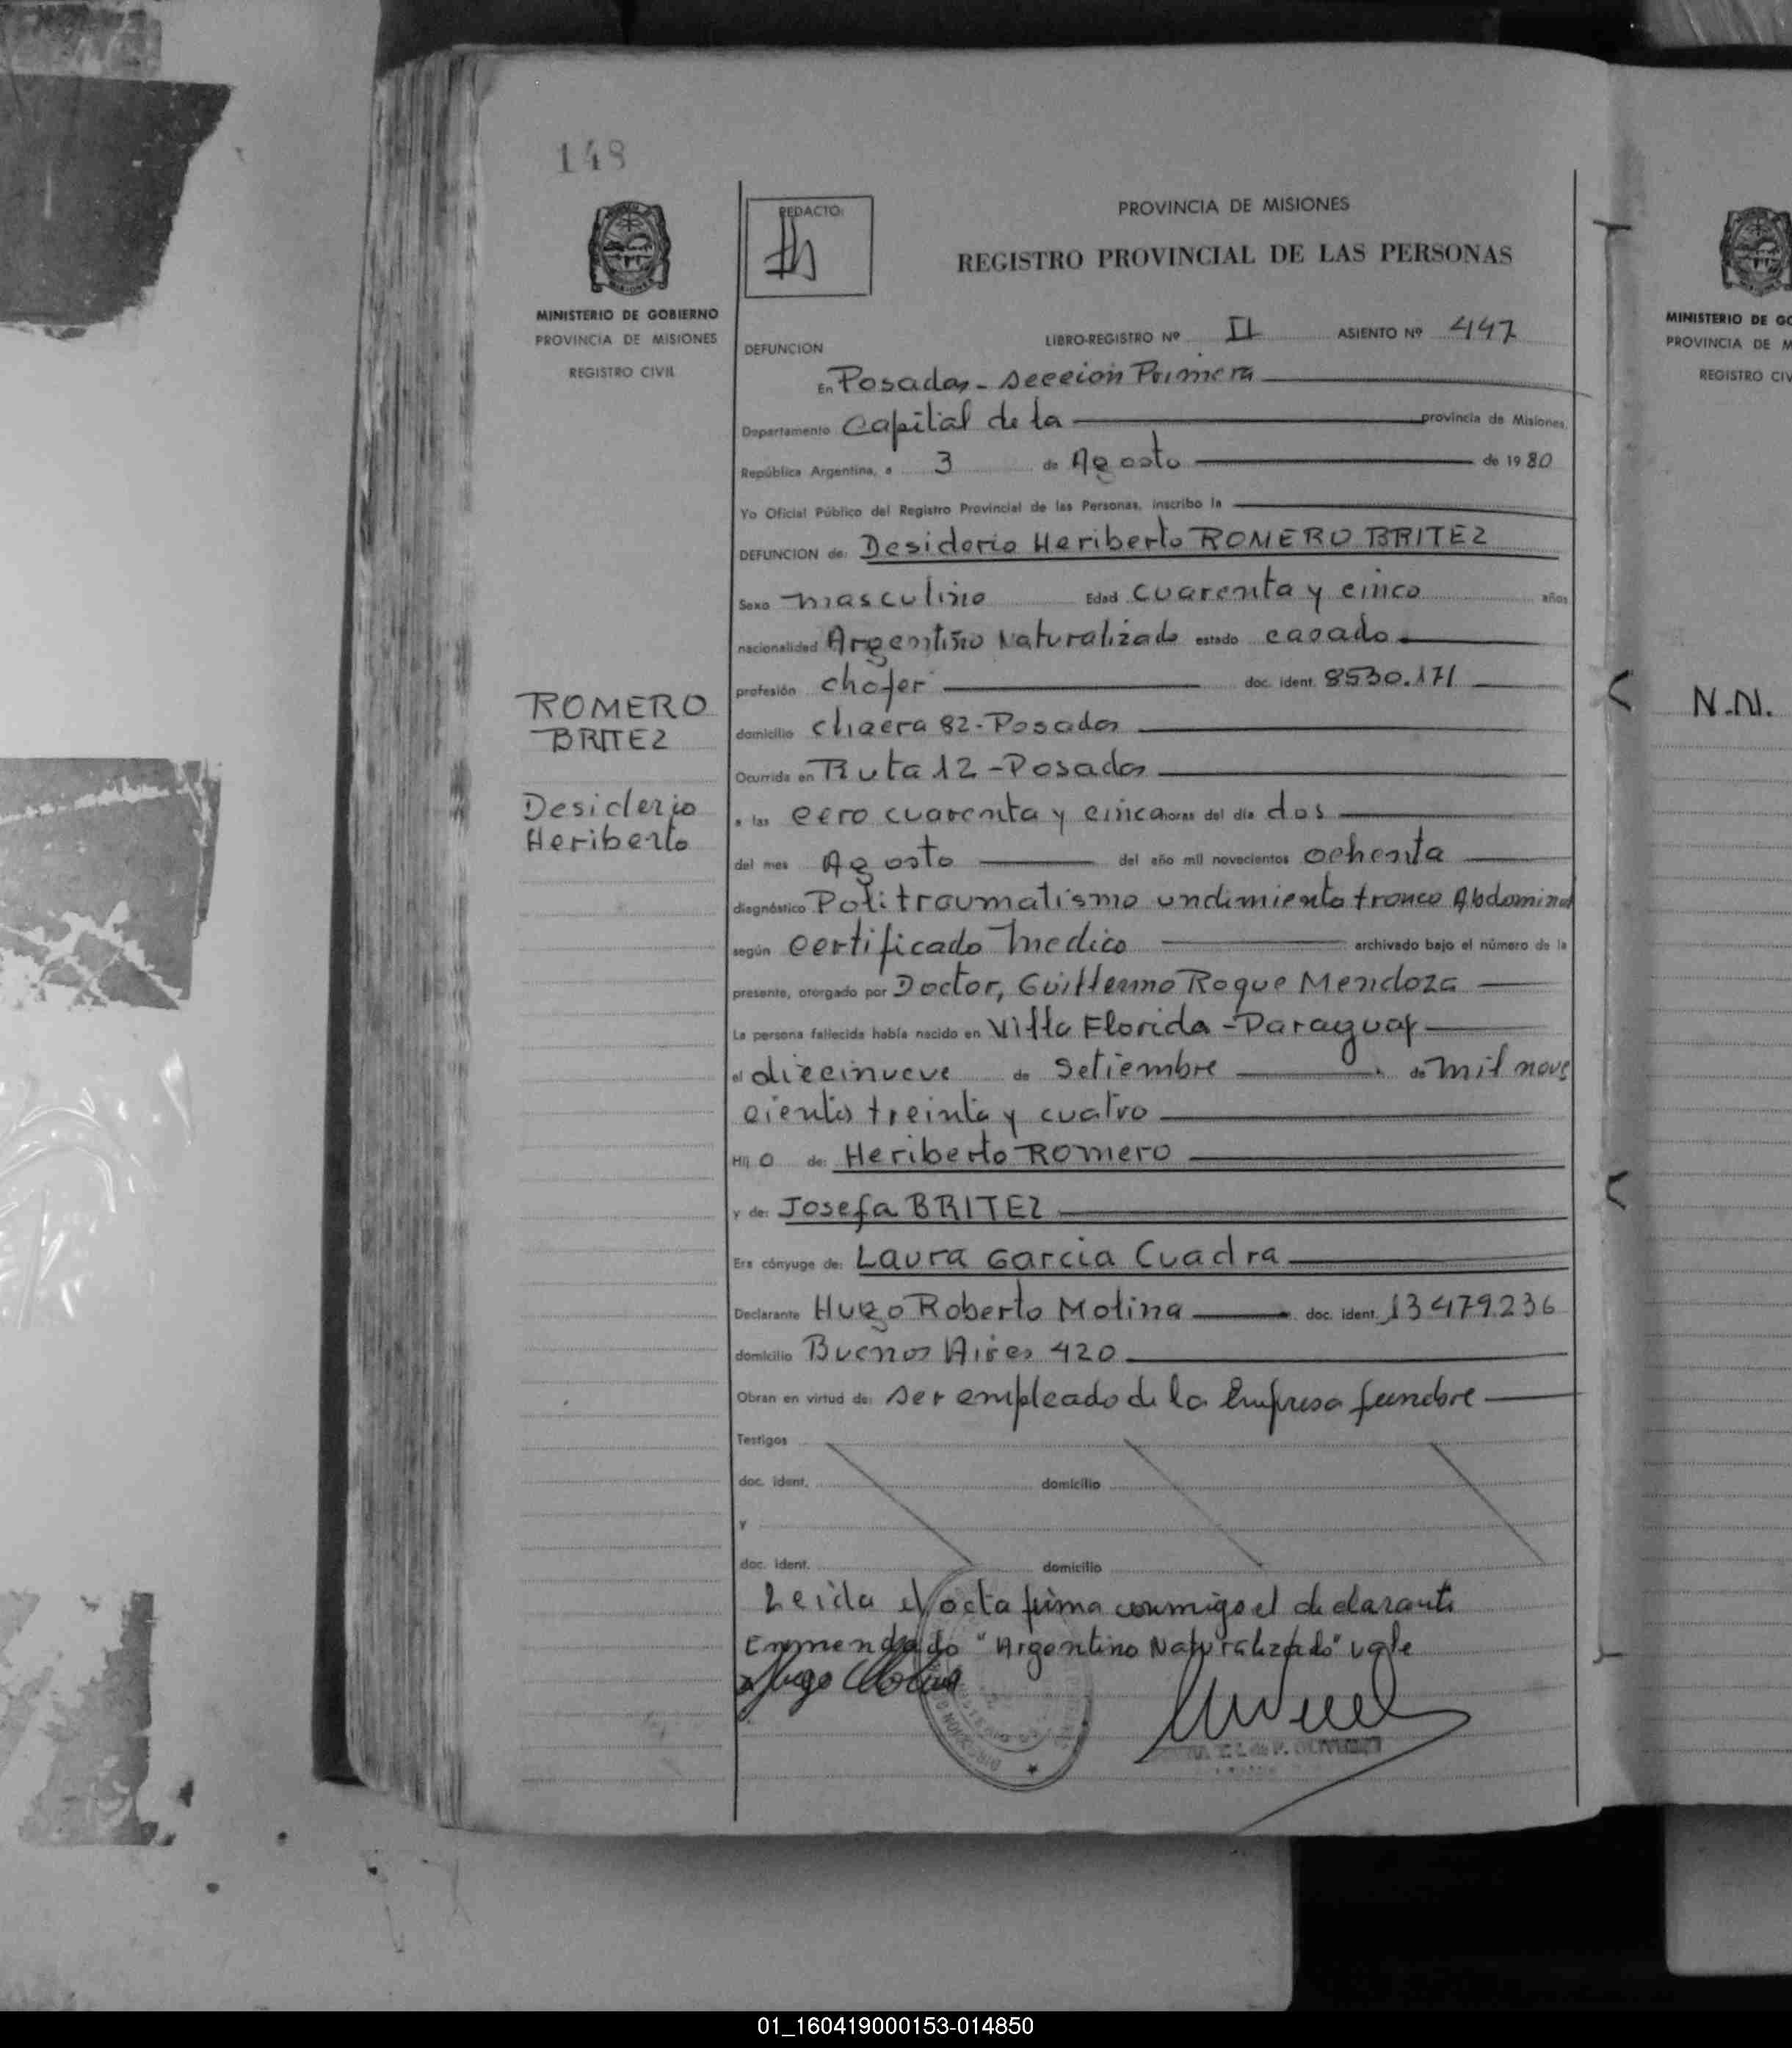 148
MINISTERIO DE GOBIERNO
PROVINCIA DE MISIONES
REGISTRO CIVIL
ROMERO
BRITEZ
Desiderio
Heriberto
REDACTO:
PROVINCIA DE MISIONES
REGISTRO PROVINCIAL DE LAS PERSONAS
DEFUNCION LIBRO-REGISTRO Nº II ASIENTO Nº 447
En Posadas - Sección Primera
Departamento Capital de la provincia de Misiones,
República Argentina, a 3 de Agosto de 1980
Yo Oficial Público del Registro Provincial de las Personas, inscribo la
DEFUNCION de: Desiderio Heriberto ROMERO BRITEZ
Sexo masculino Edad cuarenta y cinco años
nacionalidad Argentino Naturalizado estado casado
profesión chofer doc. ident. 8530.171
domicilio chacra 82 - Posadas
Ocurrida en Ruta 12 - Posadas
a las cero cuarenta y cinco horas del día dos
del mes Agosto del año mil novecientos ochenta
diagnóstico Politraumatismo undimiento tronco Abdominal
según certificado medico archivado bajo el número de la
presente, otorgado por Doctor, Guillermo Roque Mendoza
La persona fallecida había nacido en Villa Florida - Paraguay
el diecinueve de Setiembre de mil nove
cientos treinta y cuatro
Hijo de: Heriberto Romero
y de: Josefa BRITEZ
Era cónyuge de: Laura Garcia Cuadra
Declarante Hugo Roberto Molina doc. ident. 13479.236
domicilio Buenos Aires 420
Obran en virtud de: ser empleado de la Empresa funebre
Testigos
doc. ident. domicilio
y
doc. ident. domicilio
Leida el acta firma conmigo el declarante
Enmendado "Argentino Naturalizado" vale
Hugo Molina
MINISTERIO DE GO
PROVINCIA DE M
REGISTRO CIV
N.N.
01_160419000153-014850